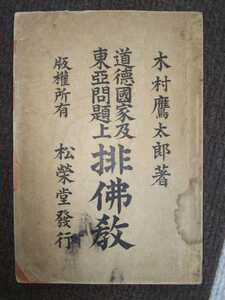 木村鷹太郎著
道德國家及
東亞問題上
排佛敎
版權所有
松榮堂發行